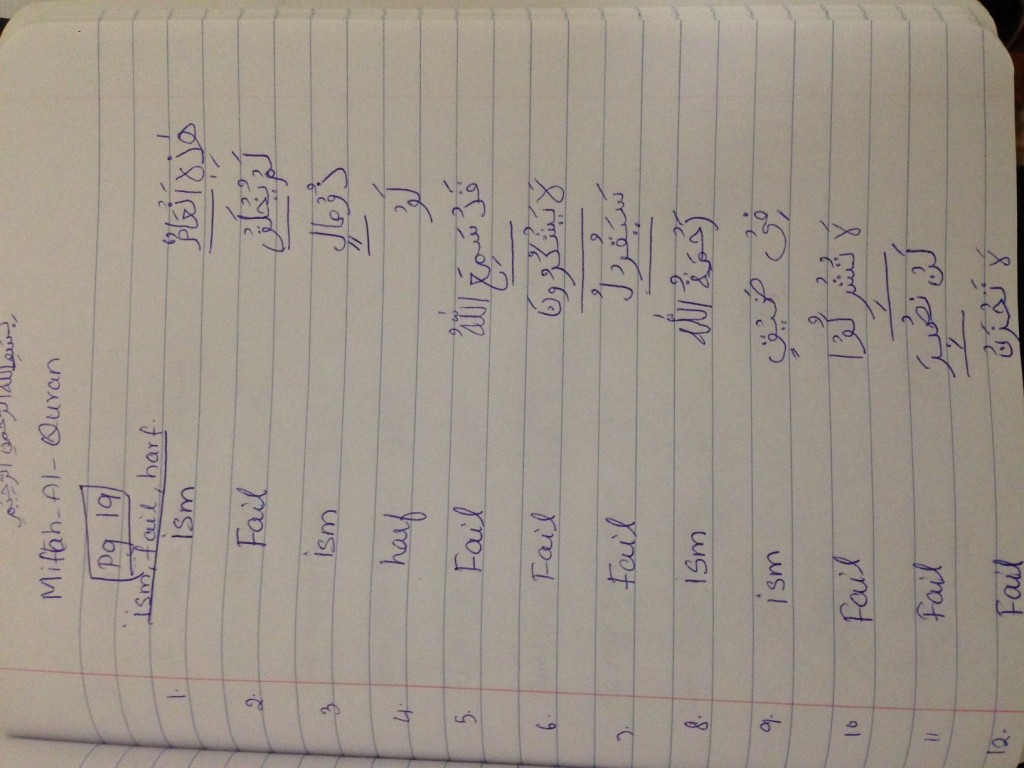 بسم الله الرحمن الرحيم
Miftah-Al-Quran
Pg 19
ism, fail, harf.
1. ism هَذَا الْعَامُ
2. Fail لَمْ يُخْلَقْ
3. ism ذُوْمَالٍ
4. harf لَوْ
5. Fail قَدْ سَمِعَ اللّٰهُ
6. Fail لَا يَشْكُرُوْنَ
7. Fail سَيَقُوْلُ
8. ism رَحْمَةُ اللّٰهِ
9. ism فِيْ ضَيْقٍ
10 Fail لَا تُشْرِكُوْا
11 Fail لَنْ نَصْبِرَ
12. Fail لَا تَحْزَنْ